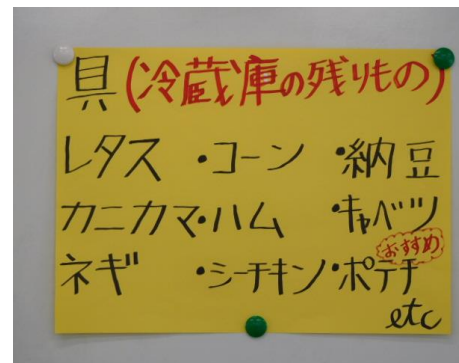 具(冷蔵庫の残りもの)
レタス ・コーン ・納豆
カニカマ・ハム ・キャベツ
おすすめ
ネギ ・シーチキン・ポテチ
etc